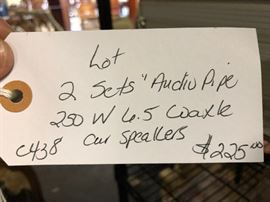 Lot
2 Sets "Audio Pipe
250 W 6.5 Coaxle
C438 Car speakers $225.00